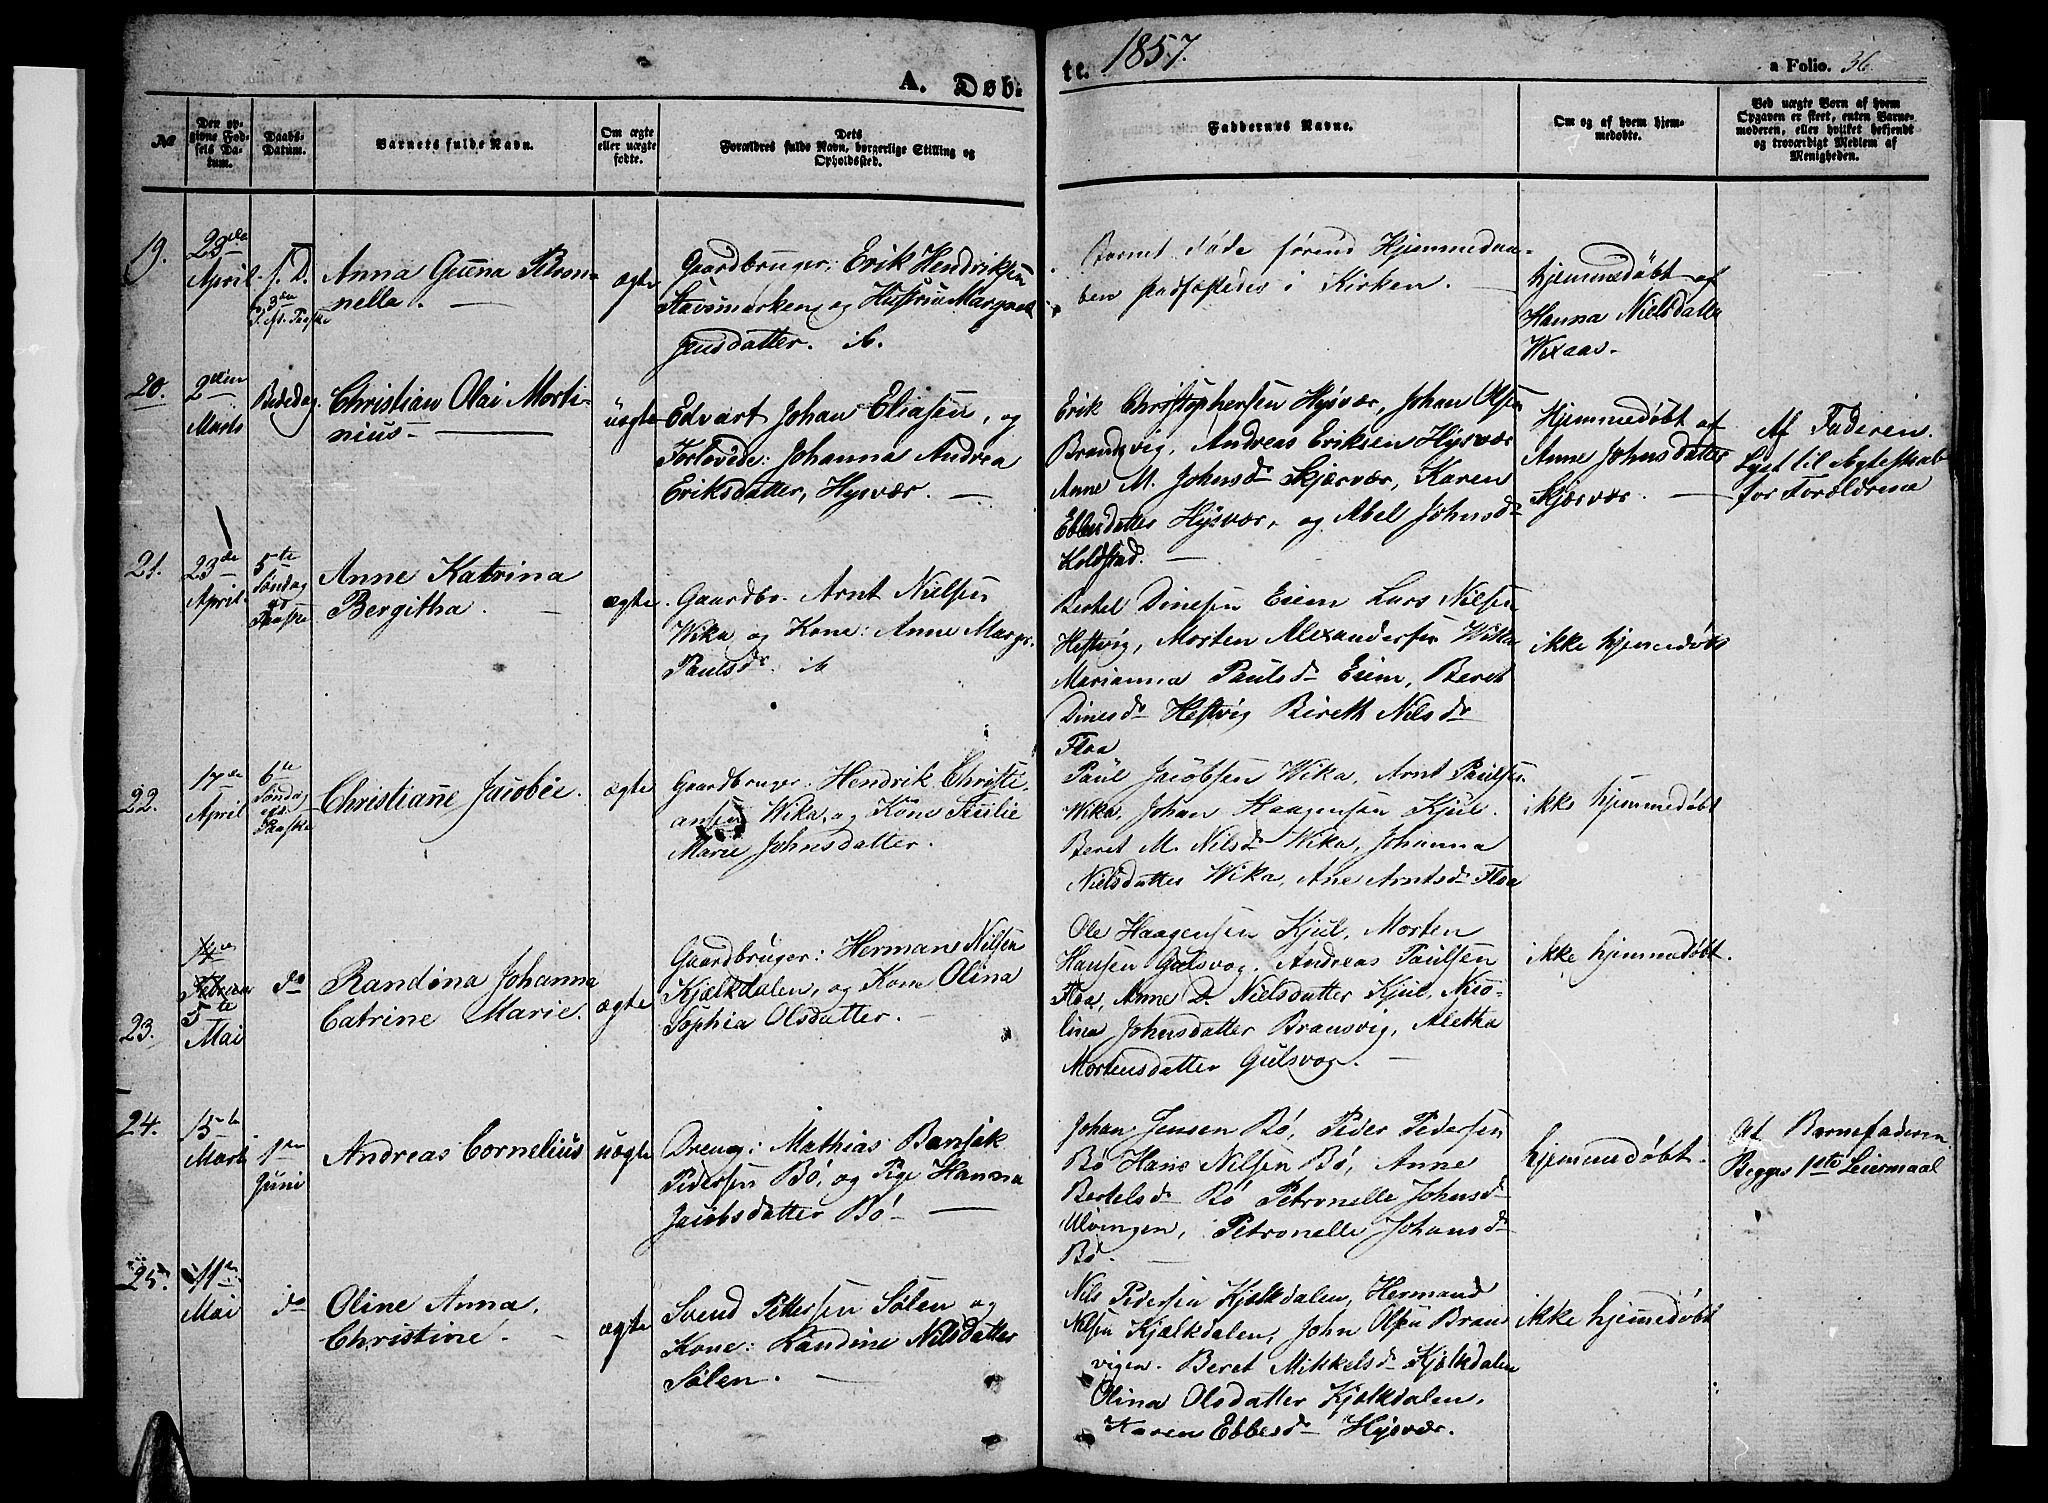 A. Døb-
te. 1857.
a Folio. 36
№
Den op-
givne Fød-
sels Da-
tum.
Daabs-
Datum.
Barnets fulde Navn.
Om ægte
eller uægte
fødte.
Dets
Forældres fulde Navn, borgerlige Stilling og
Opholdssted.
Faddernes Navne.
Om og af hvem hjem-
medøbte.
Ved uægte Børn af hvem
Opgaven er skeet, enten Barne-
moderen, eller hvilket bekjendt
og troværdigt Medlem af
Menigheden.
19.
23de
April
f. D.
3die
S. eft. Paaske
Anna Guuna Petro-
nella.
ægte
Gaardbruger: Erik Hendriksen
Stavsmarken og Hustru Margret
Jensdatter. ib.
Barnet døde førend Hjemmedaa-
ben stadfæstedes i Kirken.
hjemmedøbt af
Hanna Nielsdatter
Wixaas.
20.
2den
Marts
Bededag.
Christian Olai Morti-
nius.
uægte
Edvart Johan Eliasen, og
Forlovede: Johanna Andrea
Eriksdatter, Hysvær.
Erik Christophersen Hysvær, Johan Olsen
Brandsvig, Andreas Eriksen Hysvær
Anne M. Johnsdr Skjærvær, Karen
Ebbesdatter Hysvær, og Abel Johnsdr
Koldstad.
Hjemmedøbt af
Anne Johnsdatter
Skjærvær.
Af Faderen.
Lyst til Ægteskab
for Forældrene
21.
23de
April.
5te
Søndag
eft
Paaske
Anne Katrina
Bergitha.
ægte.
Gaardbr. Arnt Nielsen
Wika og Kone: Anne Margr.
Paulsdr. ib
Bertel Dinesen Eiem Lars Nilsen
Heftvig, Morten Alexandersen Wika
Marianna Paulsdr Eiem, Beret
Dinesdr Heftvig Bireth Nilsdr
Floa
ikke hjemmedøbt
22.
17de
April
6te
Søndag
eft.
Paaske
Christiane Jacobie.
ægte
Gaardbruger: Hendrik Christi-
ansen Wika, og Kone Sicilie
Marie Johnsdatter.
Paul Jacobsen Wika, Arnt Paulsen
Wika, Johan Haagensen Kjul.
Beret M. Nilsdr Wika, Johanna
Nielsdatter Wika, Ane Arntsdr Floa
ikke hjemmedøbt
23.
14de
Februar
5te
Mai
do
Randina Johanna
Catrine Marie.
ægte
Gaardbruger: Herman Nilsen
Kjælkdalen, og Kone Olina
Sophia Olsdatter.
Ole Haagensen Kjul, Morten
Hansen Gulsvog. Andreas Paulsen
Floa, Anne D. Nielsdatter Kjul, Nico-
lina Johnsdatter Bransvig, Aletha
Mortensdatter Gulsvog.
ikke hjemmedøbt.
24.
15de
Marts
1ste
Juni
Andreas Cornelius
uægte
Dreng: Mathias Bansjak
Pedersen Bø, og Pige Hanna
Jacobsdatter Bø
Johan Jensen Bø, Peder Pedersen
Bø Hans Nilsen Bø, Anne
Bertelsdr Bø Petronelle Johnsdr
Ulvingen, Petronelle Johansdr
Bø.
hjemmedøbt.
Af Barnefaderen
Begges 1ste Leiermaal
25.
11te
Mai
do
Oline Anna
Christine.
ægte
Svend Pettersen Sølen og
Kone: Randine Nilsdatter
Sølen.
Nils Pedersen Kjælkdalen, Hermand
Nilsen Kjælkdalen, John Olsen Bran
vigen. Beret Mikkelsdr Kjælkdalen
Olina Olsdatter Kjælkdalen.
Karen Ebbesdr Hysvær.
ikke hjemmedøbt